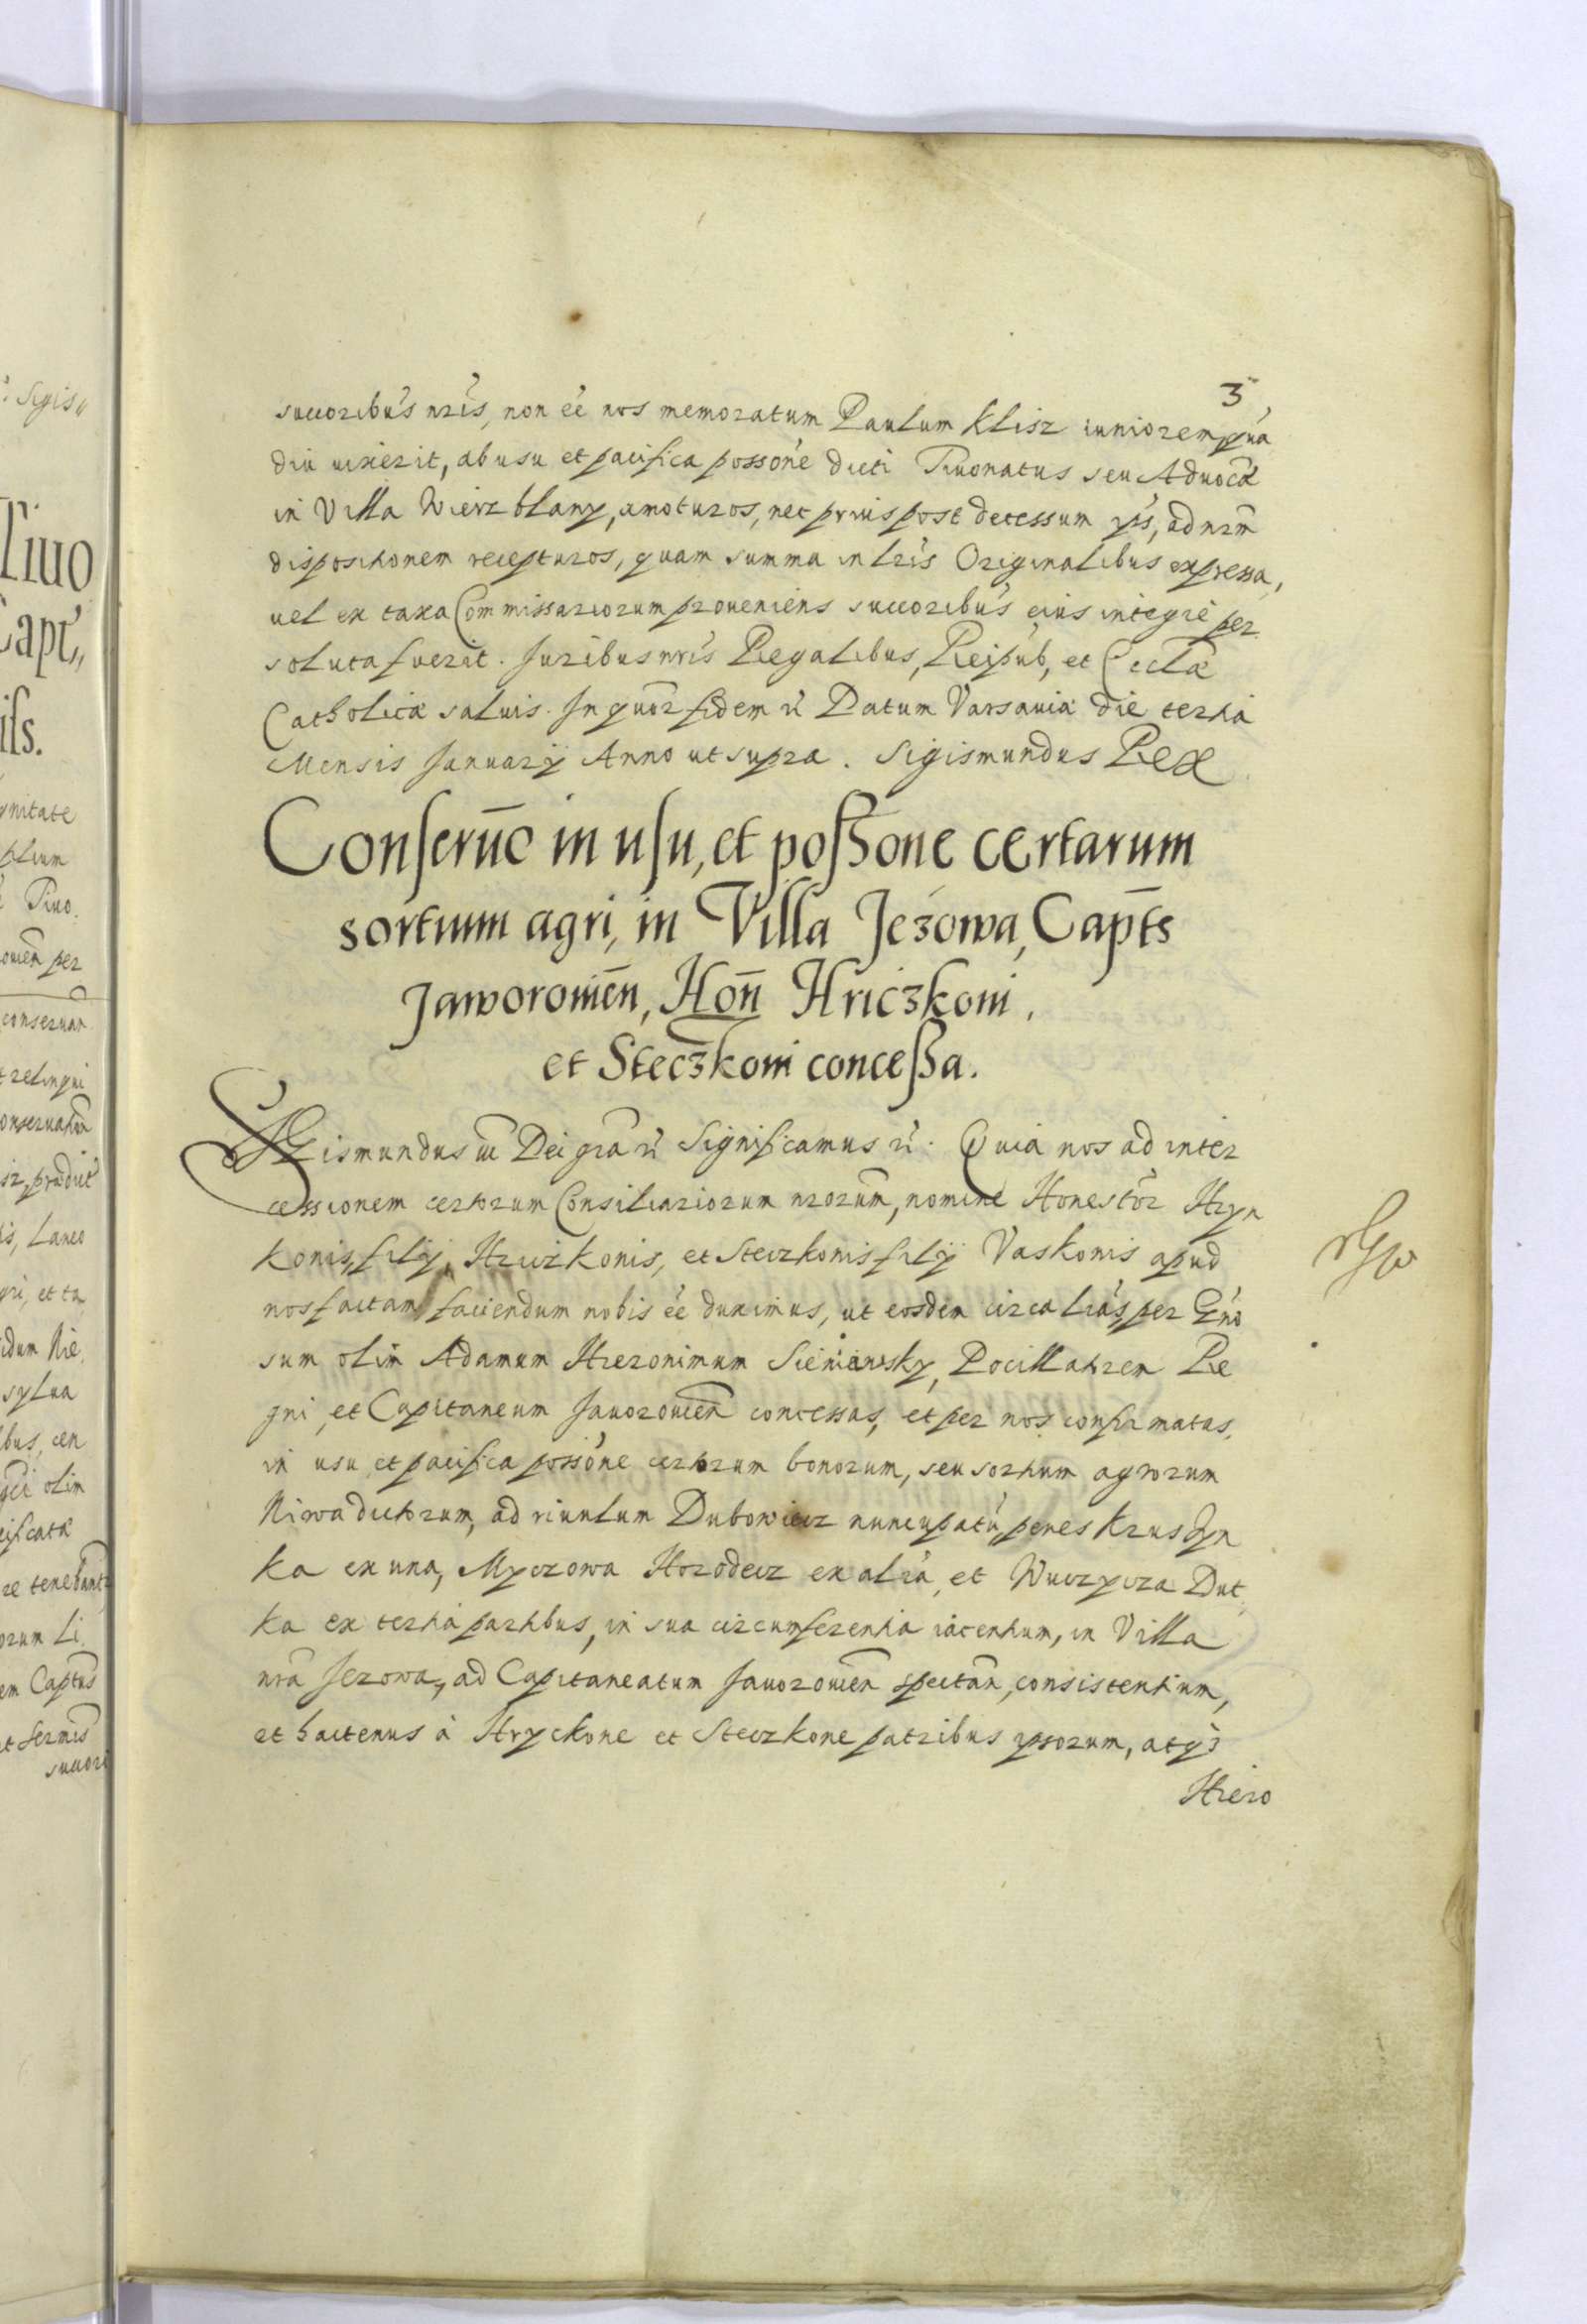 3
succoribus nris, non ee nos memoratum Paulum Klisz iuniorem qua
diu uixerit, ab usu et pacifica possone dicti Tiuonatus seu Aduoca
in Villa Wierzblany, amoturos, nec prius post decessum ips, ad nrm
dispositionem recepturos, quam summa in lris Originalibus expressa,
uel ex taxa Commissariorum proueniens succoribus eius integre per
soluta fuerit. Juribus nris Regalibus, Reipub, et Eccla
Catholicæ saluis. In quor fidem Datum Varsauiæ die tertia
Mensis Januarij Anno ut supra. Sigismundus Rex
Conseruo in usu, et possone certarum
sortium agri, in Villa Jezowa, Capts
Jaworouien, Hon Hriczkoni,
et Steczkoni concessa.
Sigismundus iii Dei gra Significamus Quia nos ad inter
cessionem certorum Consiliariorum nrorum, nomine Honestor Hryn
konis, filij, Hriczkonis, et Steczkonis filij Vaskonis apud
nos factam faciendum nobis ee duximus, ut eosdem circa lras per Gno
sum olim Adamum Hieronimum Sieniawsky, Pocillatorem Re
gni, et Capitaneum Jauorouien concessas, et per nos confirmatas,
in usu et pacifica possone certorum bonorum, seu sortium agrorum
Niwa dictorum, ad riuulum Dubowiecz nuncupatu, penes Kruszyn
ka ex una, Myczowa Horodecz ex alra, et Wuczycza Dut
ka ex tertia partibus, in sua circumferentia iacentium, in Villa
nra Jezowa, ad Capitaneatum Jauorouien spectan, consistentium,
et hactenus à Hryckone et Steczkone patribus ipsorum, atq3
Hiero